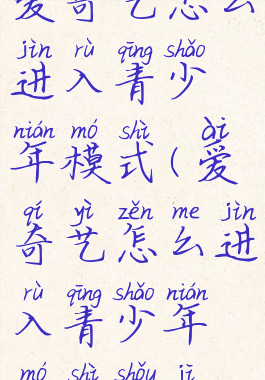 爱奇艺怎么
jìn rù qīng shǎo
进入青少
nián mó shì ài
年模式(爱
qí yì zěn me jìn
奇艺怎么进
rù qīng shǎo nián
入青少年
mó shì shǒu jī